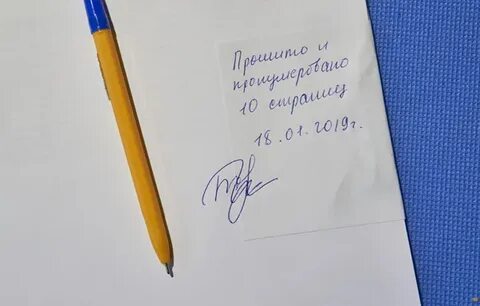 Прошито и
пронумеровано
10 страниц
18.01.2019г.